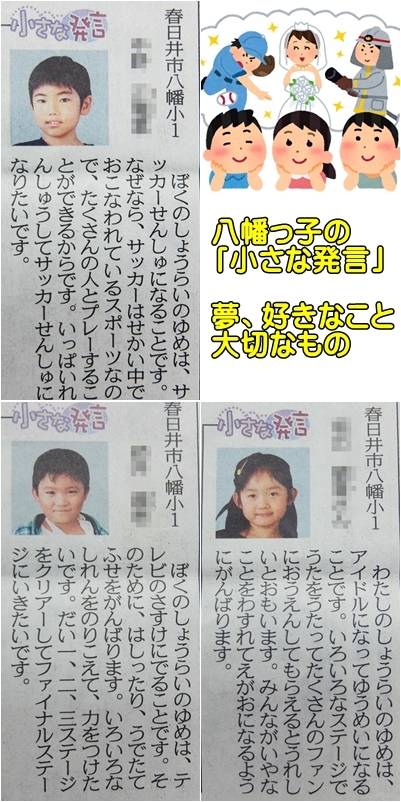 小さな発言
春日井市八幡小1
ぼくのしょうらいのゆめは、サ
ッカーせんしゅになることです。
なぜなら、サッカーはせかい中で
おこなわれているスポーツなの
で、たくさんの人とプレーするこ
とができるからです。いっぱいれ
んしゅうしてサッカーせんしゅに
なりたいです。
八幡っ子の
「小さな発言」
夢、好きなこと
大切なもの
小さな発言
春日井市八幡小1
ぼくのしょうらいのゆめは、テ
レビのさすけにでることです。そ
のために、はしったり、うでたて
ふせをがんばります。いろいろな
しれんをのりこえて、力をつけた
いです。だい一、二、三ステージ
をクリアーしてファイナルステー
ジにいきたいです。
小さな発言
春日井市八幡小1
わたしのしょうらいのゆめは、
アイドルになってゆうめいになる
ことです。いろいろなステージで
うたをうたってたくさんのファン
におうえんしてもらえるとうれし
いとおもいます。みんながいやな
ことをわすれてえがおになるよう
にがんばります。